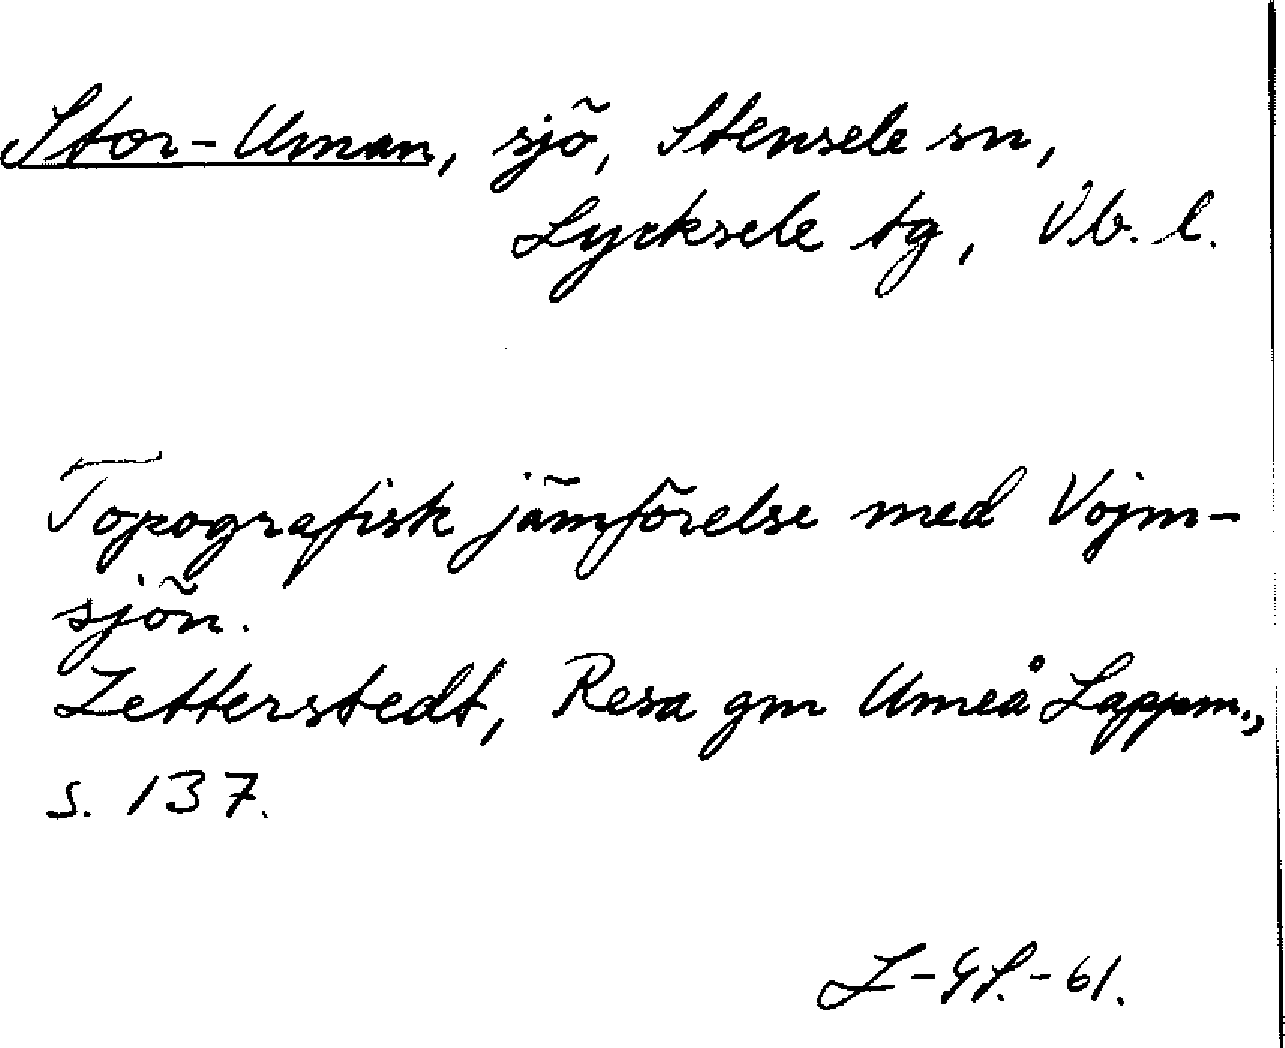 Stor-Uman, sjö, Stensele sn,
Lycksele tg, Vb. l.
Topografisk jämförelse med Vojm-
sjön.
Zetterstedt, Resa gm Umeå Lappm.,
s. 137.